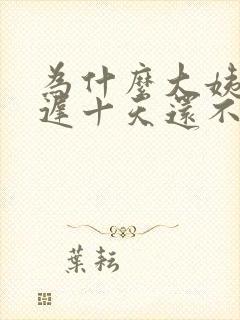 為什麼大姨
遲十天還不
葉耘